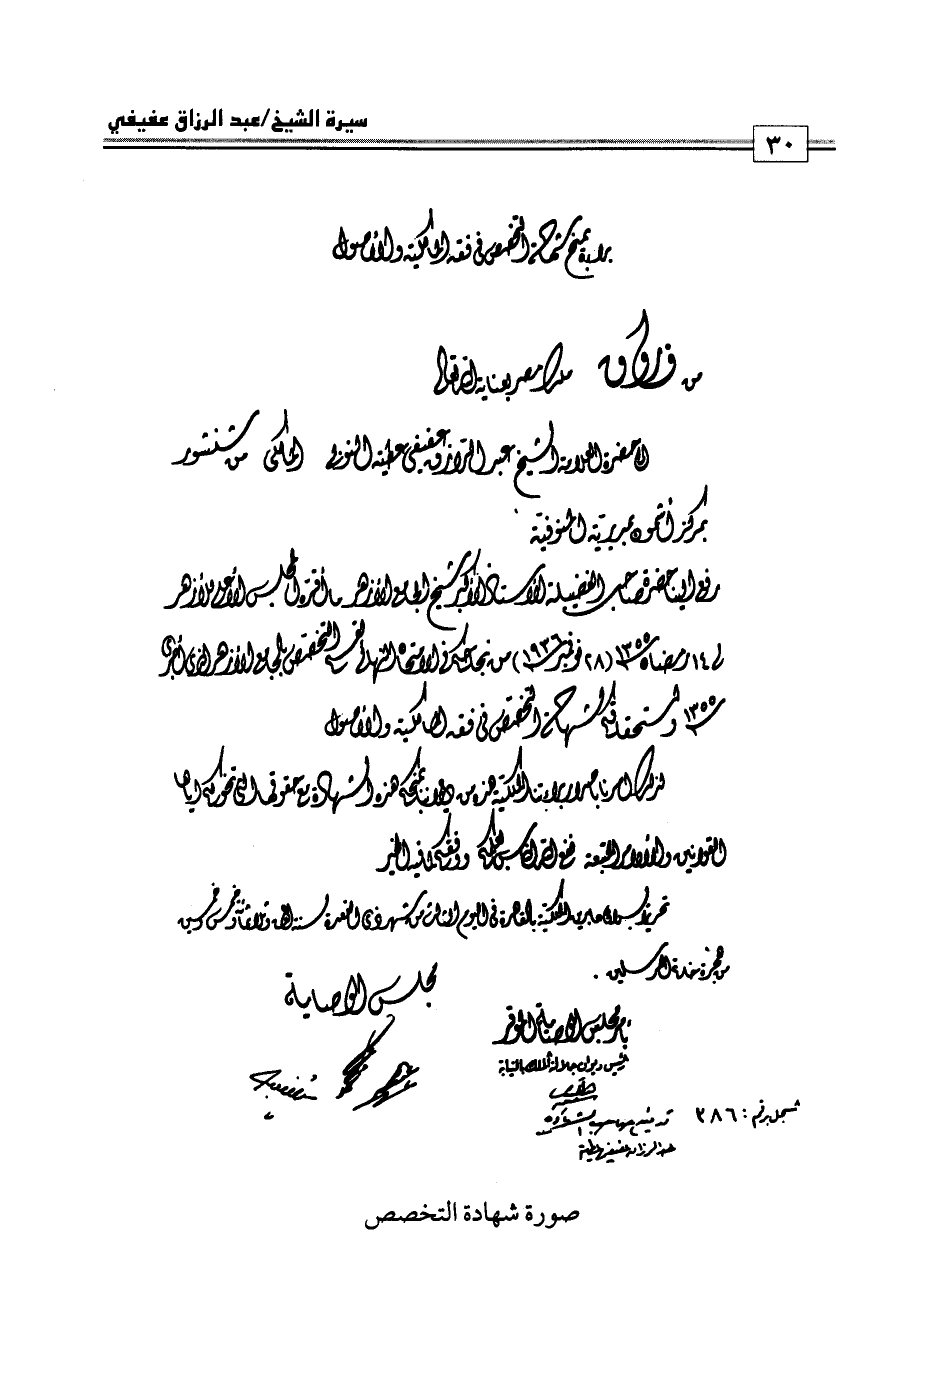 سيرة الشيخ/عبد الرزاق عفيفي
٣٠
براءة بمنح شهادة التخصص في فقه المالكية والأصول
من فاروق ملك مصر بعناية الله تعالى
إلى حضرة العلامة الشيخ عبد الرازق عفيفي عطية النوبي المالكي من شنشور
بمركز أشمون بمديرية المنوفية
رفع إلينا حضرة صاحب الفضيلة الأستاذ الأكبر شيخ الجامع الأزهر ما أقره المجلس الأعلى للأزهر
في ١٤ رمضان سنة ١٣٥٥ (٢٨ نوفمبر سنة ١٩٣٦) من نجاحكم في الامتحان النهائي لقسم التخصص بالجامع الأزهر الذي أجري
سنة ١٣٥٥ واستحقاقكم لشهادة التخصص في فقه المالكية والأصول
لذلك أمرنا بإصدار براءتنا الملكية هذه من ديواننا بمنحكم هذه الشهادة مع حقوقها التي تخولكم إياها
القوانين والأوامر المتبعة نفع الله الناس بعلمكم ووفقكم لما فيه الخير
تحريرا بسراي عابدين الملكية بالقاهرة في اليوم الثالث من شهر ذي القعدة لسنة ألف وثلثمائة وخمس وخمسين
من هجرة خاتم المرسلين .
مجلس الوصاية
بأمر مجلس الوصاية الموقر
رئيس ديوان جلالة الملك بالنيابة
سجل برقم : ٣٨٦
صاحب الشهادة
عبد الرزاق عفيفي عطية
صورة شهادة التخصص